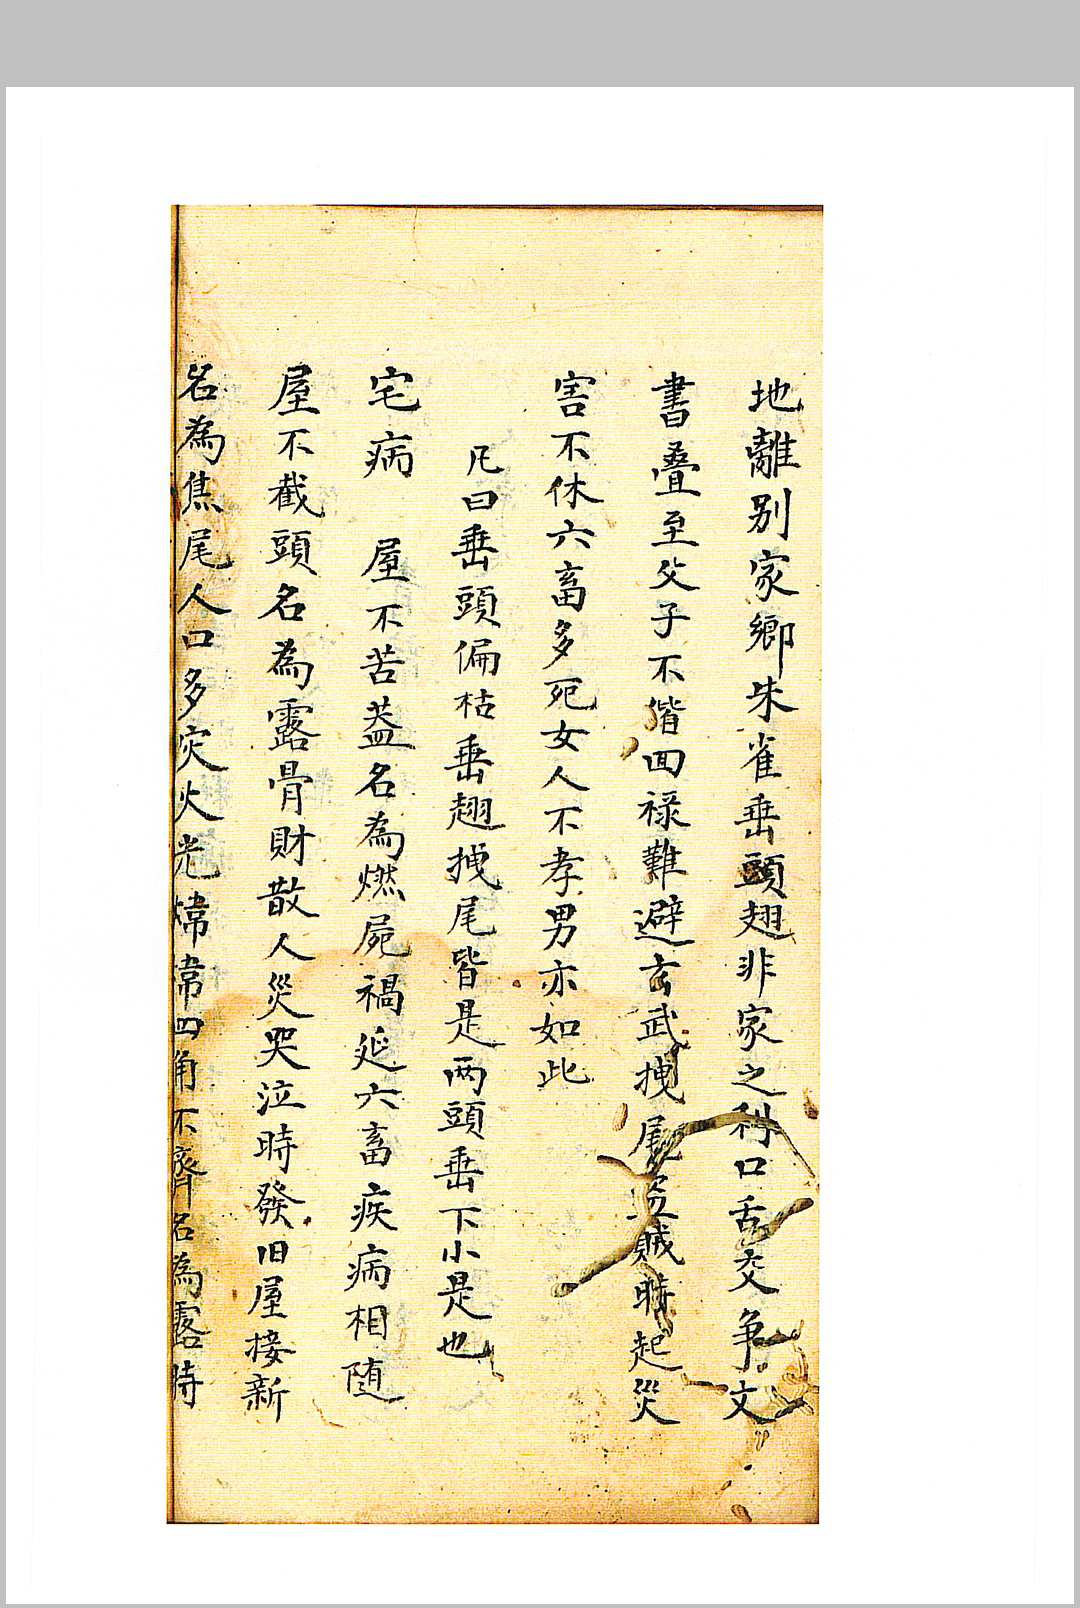 地離别家鄉朱雀垂頭翅非家之利口舌交爭文
書叠至父子不偕回禄難避玄武拽尾盗賊時起災
害不休六畜多死女人不孝男亦如此
凡曰垂頭偏枯垂翅拽尾皆是两頭垂下小是也
宅病　屋不苫蓋名為燃屍禍延六畜疾病相随
屋不截頭名為露骨財散人災哭泣時發旧屋接新
名為焦尾人口多灾火光煒煒四角不齊名為露時